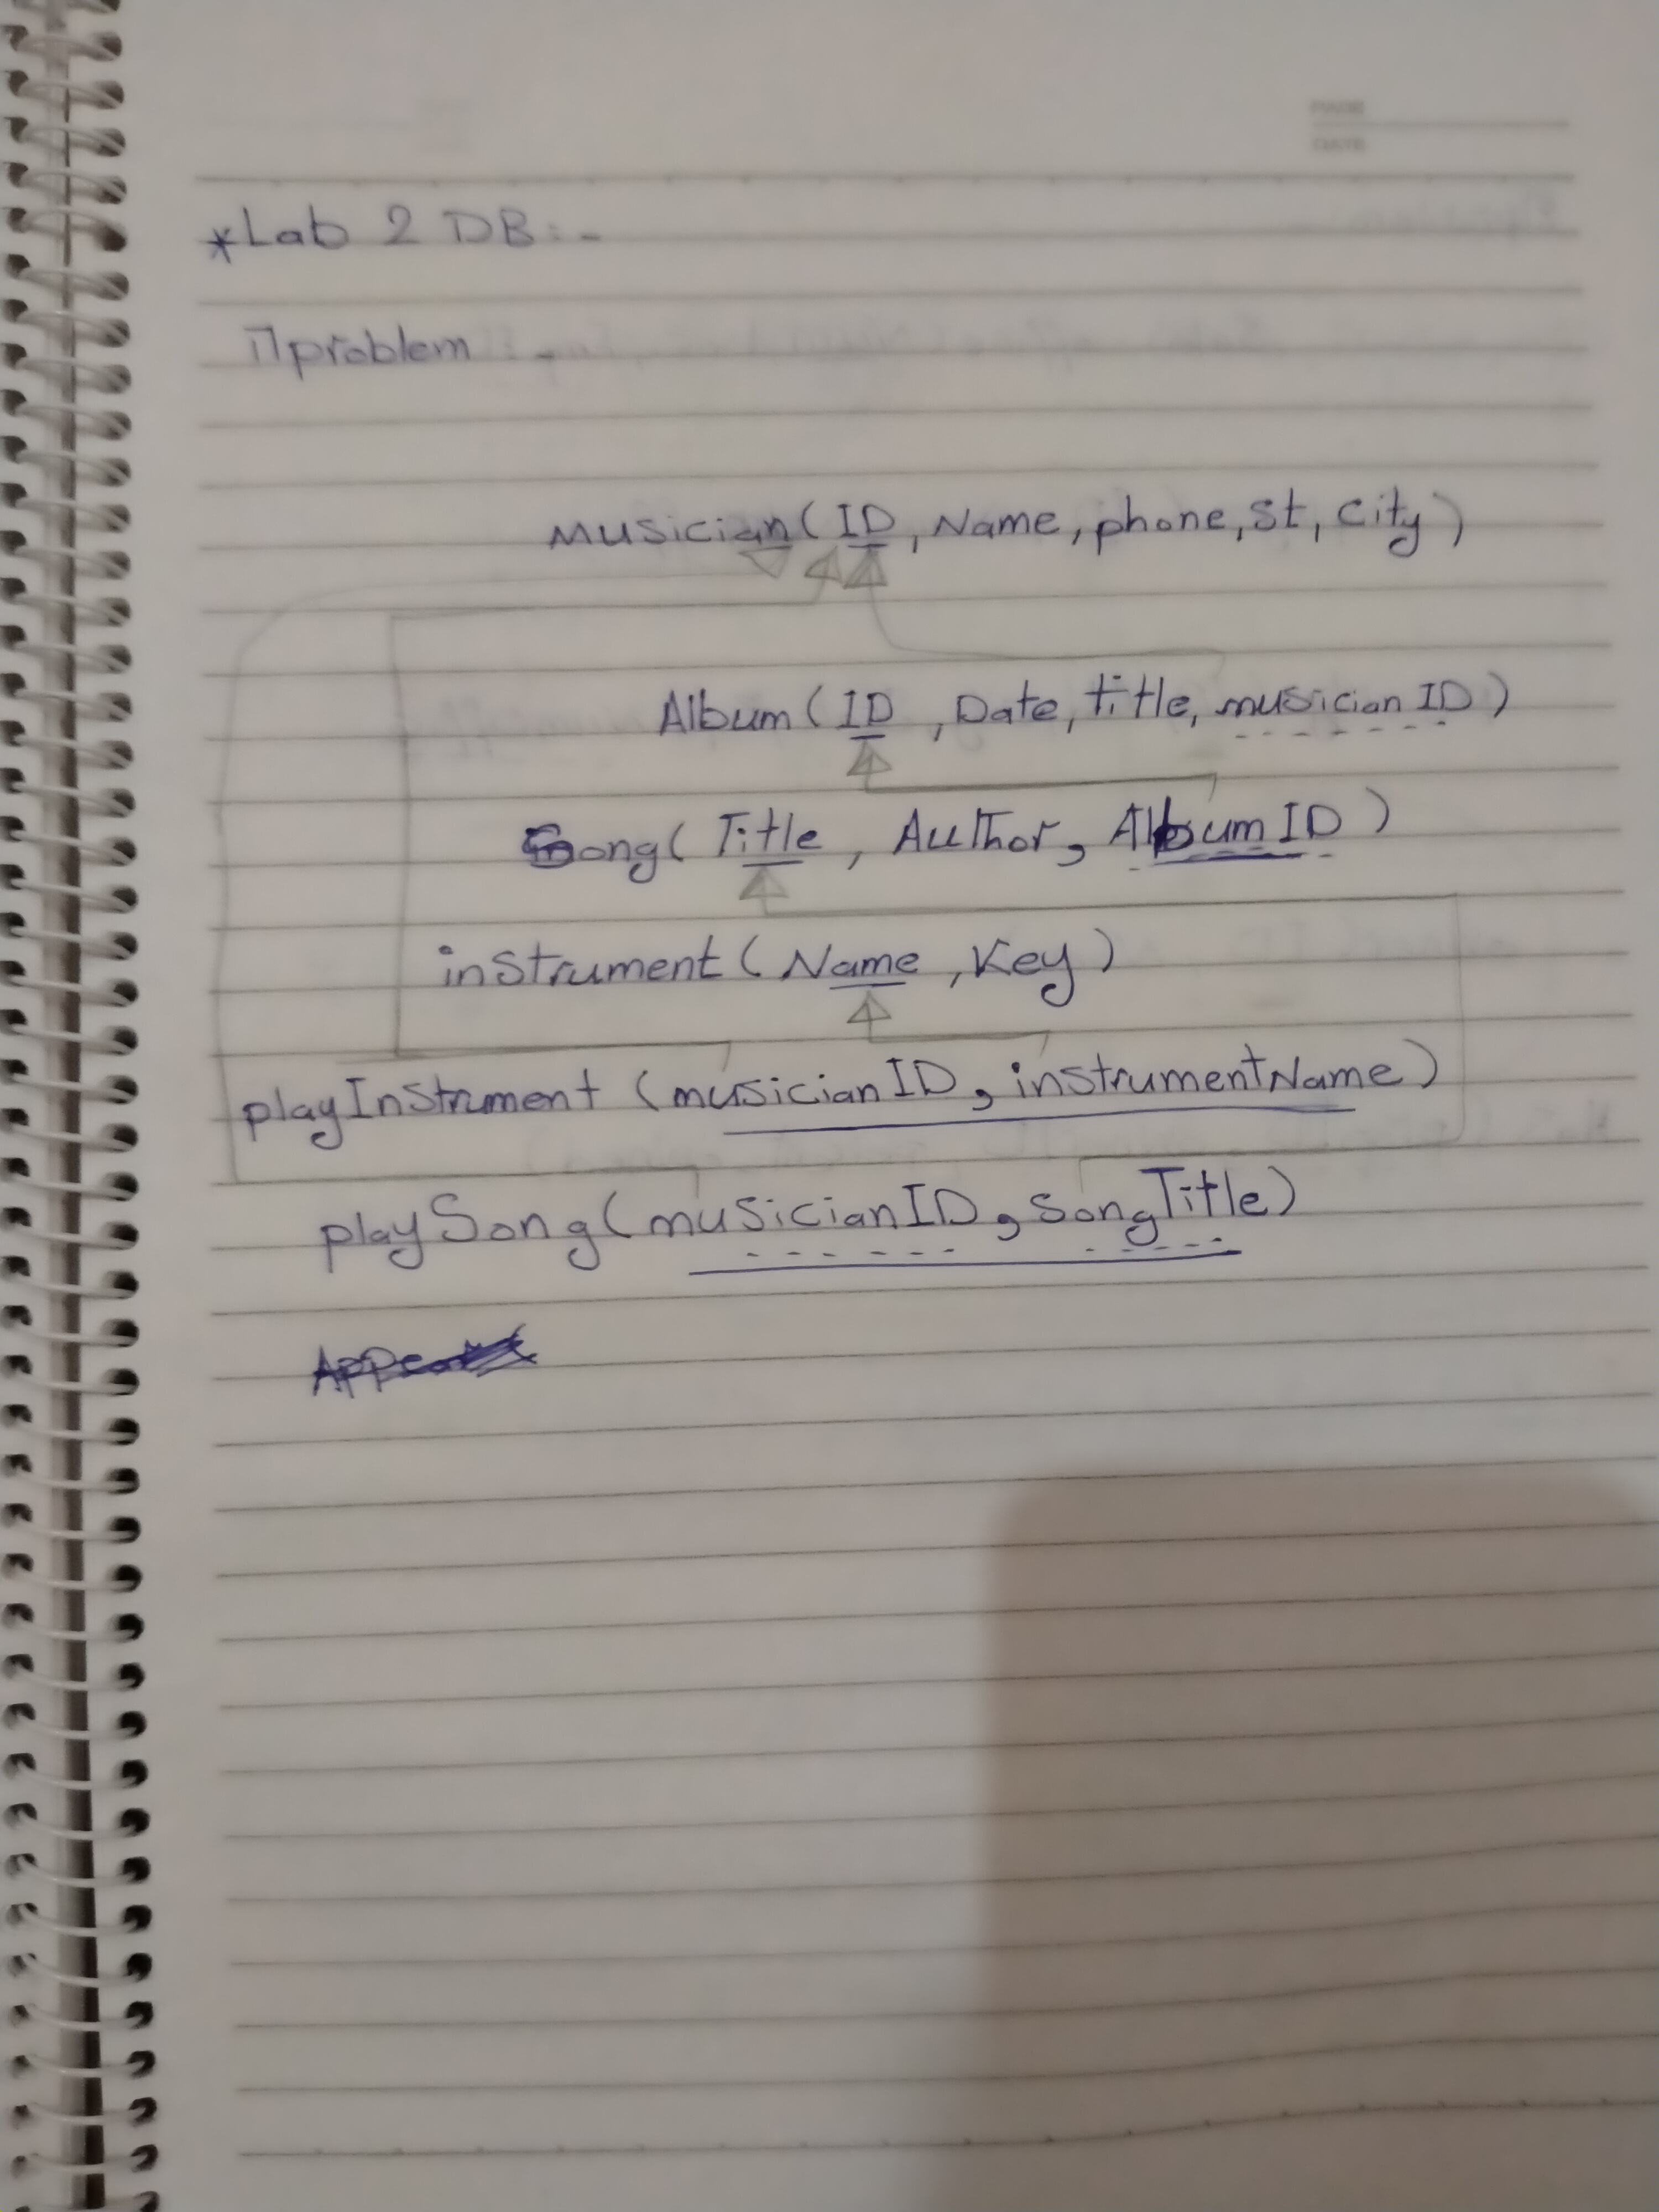 PAGE
DATE
*Lab 2 DB:-
1]problem -
musician(ID, Name, phone, st, City)
Album(ID, Date, title, musicianID)
Song(Title, Author, AlbumID)
instrument(Name, Key)
playInstrument (musicianID, instrumentName)
playSong(musicianID, songTitle)